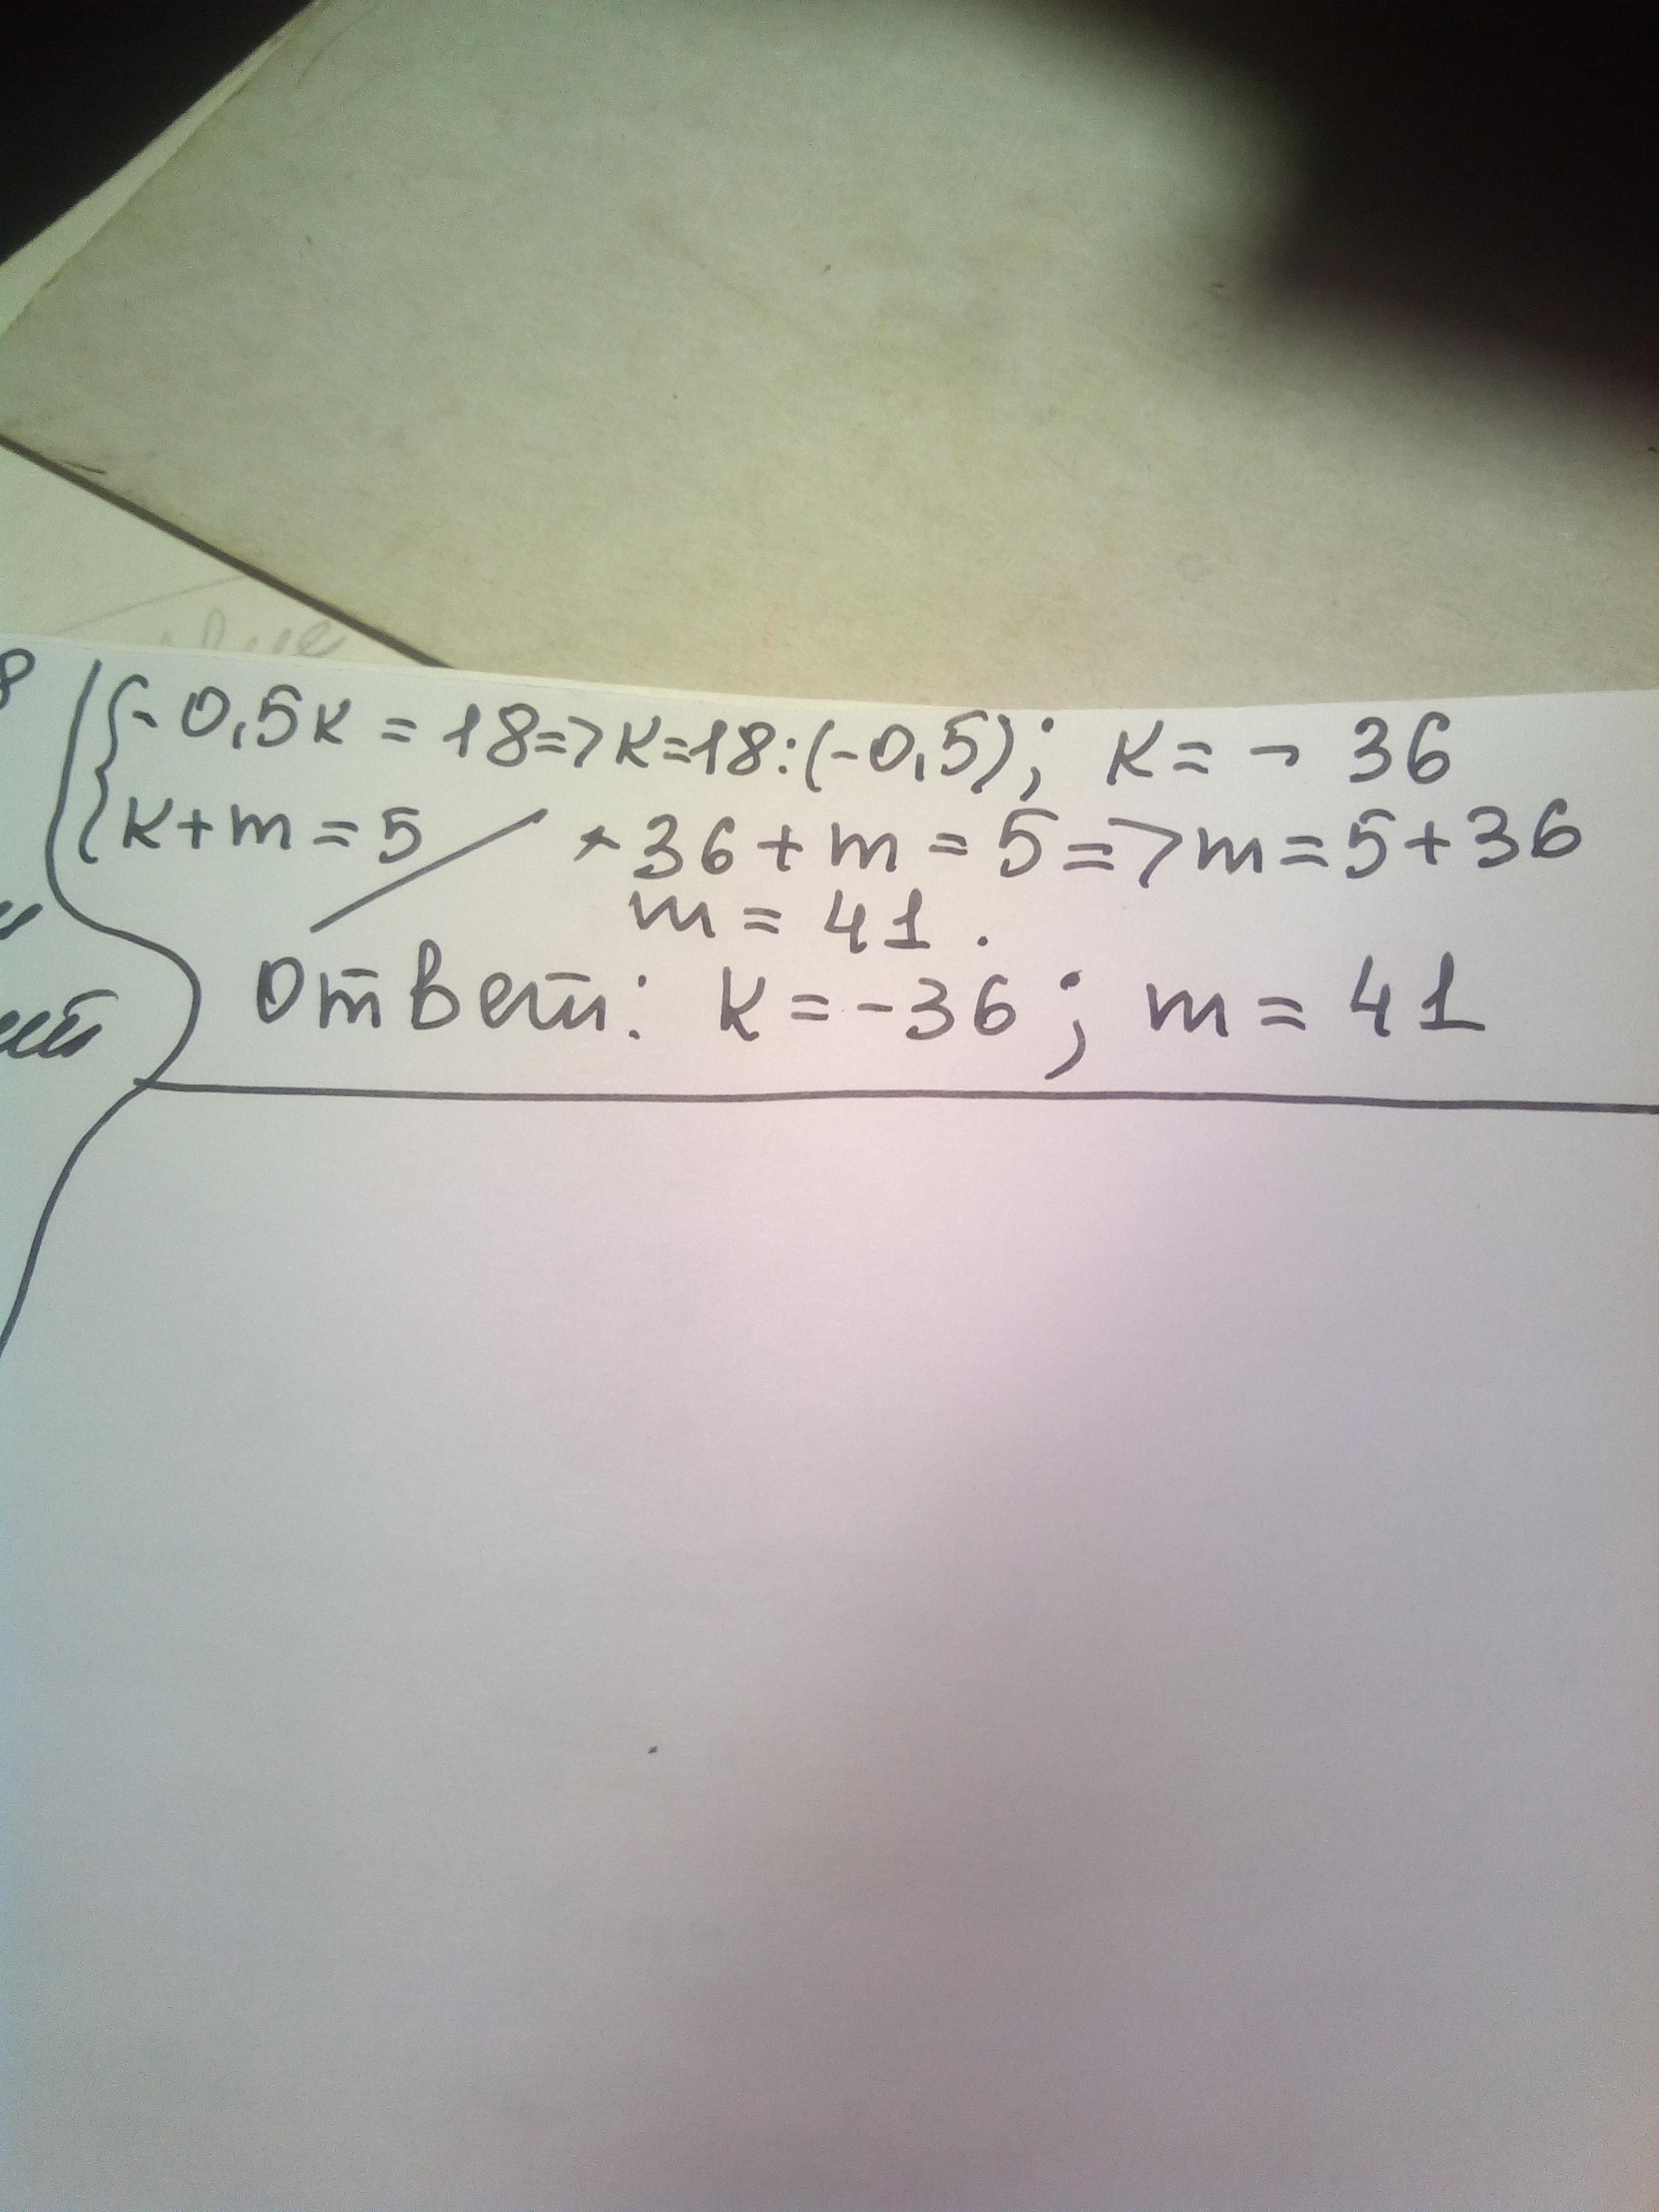 {-0,5к = 18=>к=18:(-0,5); к= - 36
к+m = 5 -36+m = 5=>m=5+36
m = 41.
Ответ: к=-36; m = 41